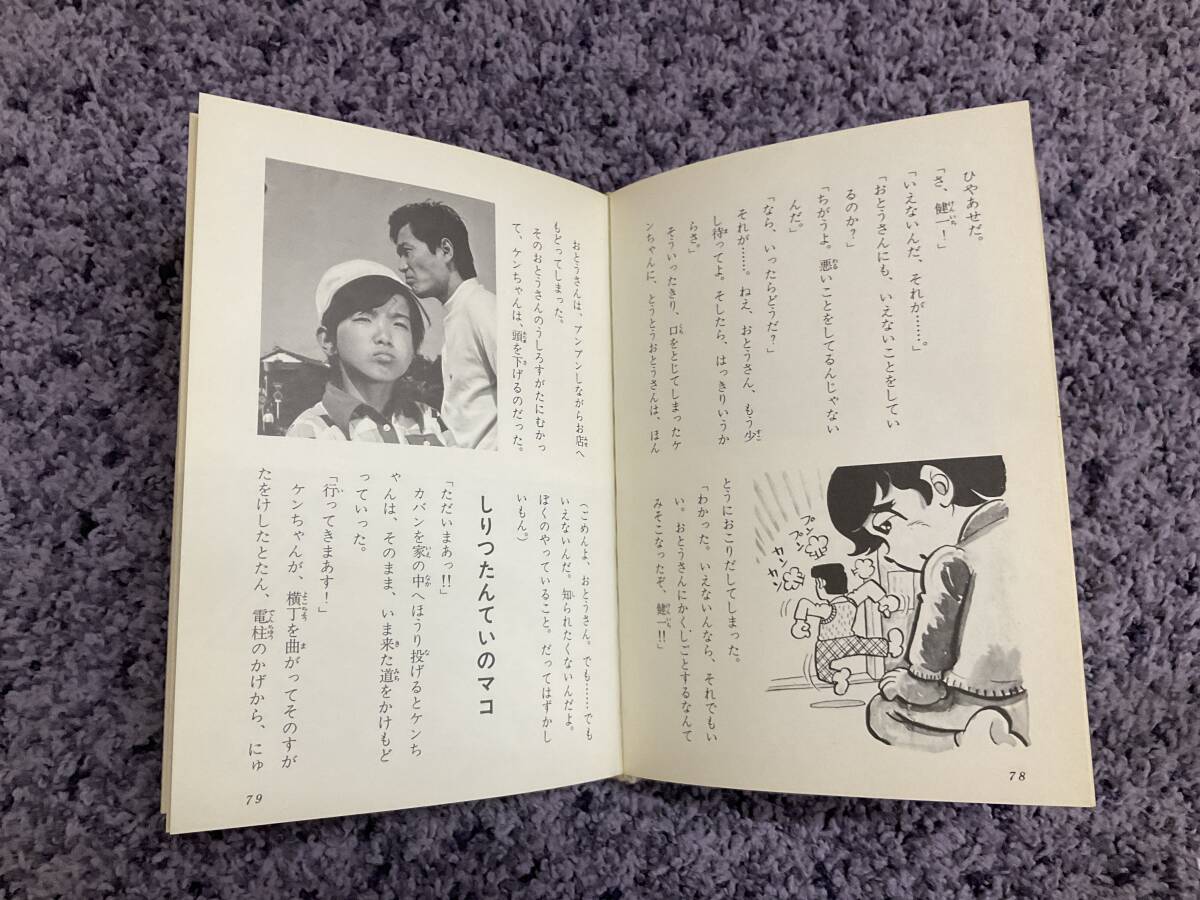 ひやあせだ。
「さ、健一！」
「いえないんだ、それが……。」
「おとうさんにも、いえないことをしてい
るのか？」
「ちがうよ。悪いことをしてるんじゃない
んだ。」
「なら、いったらどうだ？」
それが……。ねえ、おとうさん、もう少
し待ってよ。そしたら、はっきりいうか
らさ。」
そういったきり、口をとじてしまったケ
ンちゃんに、とうとうおとうさんは、ほん
とうにおこりだしてしまった。
「わかった。いえないんなら、それでもい
い。おとうさんにかくしごとするなんて
みそこなったぞ、健一!!」
プンプン
カンカン
78
おとうさんは、プンプンしながらお店へ
もどってしまった。
そのおとうさんのうしろすがたにむかっ
て、ケンちゃんは、頭を下げるのだった。
（ごめんよ、おとうさん。でも……でも
いえないんだ。知られたくないんだよ。
ぼくのやっていること。だってはずかし
いもん。）
しりつたんていのマコ
「ただいまあっ!!」
カバンを家の中へほうり投げるとケンち
ゃんは、そのまま、いま来た道をかけもど
っていった。
「行ってきまあす！」
ケンちゃんが、横丁を曲がってそのすが
たをけしたとたん、電柱のかげから、にゅ
79